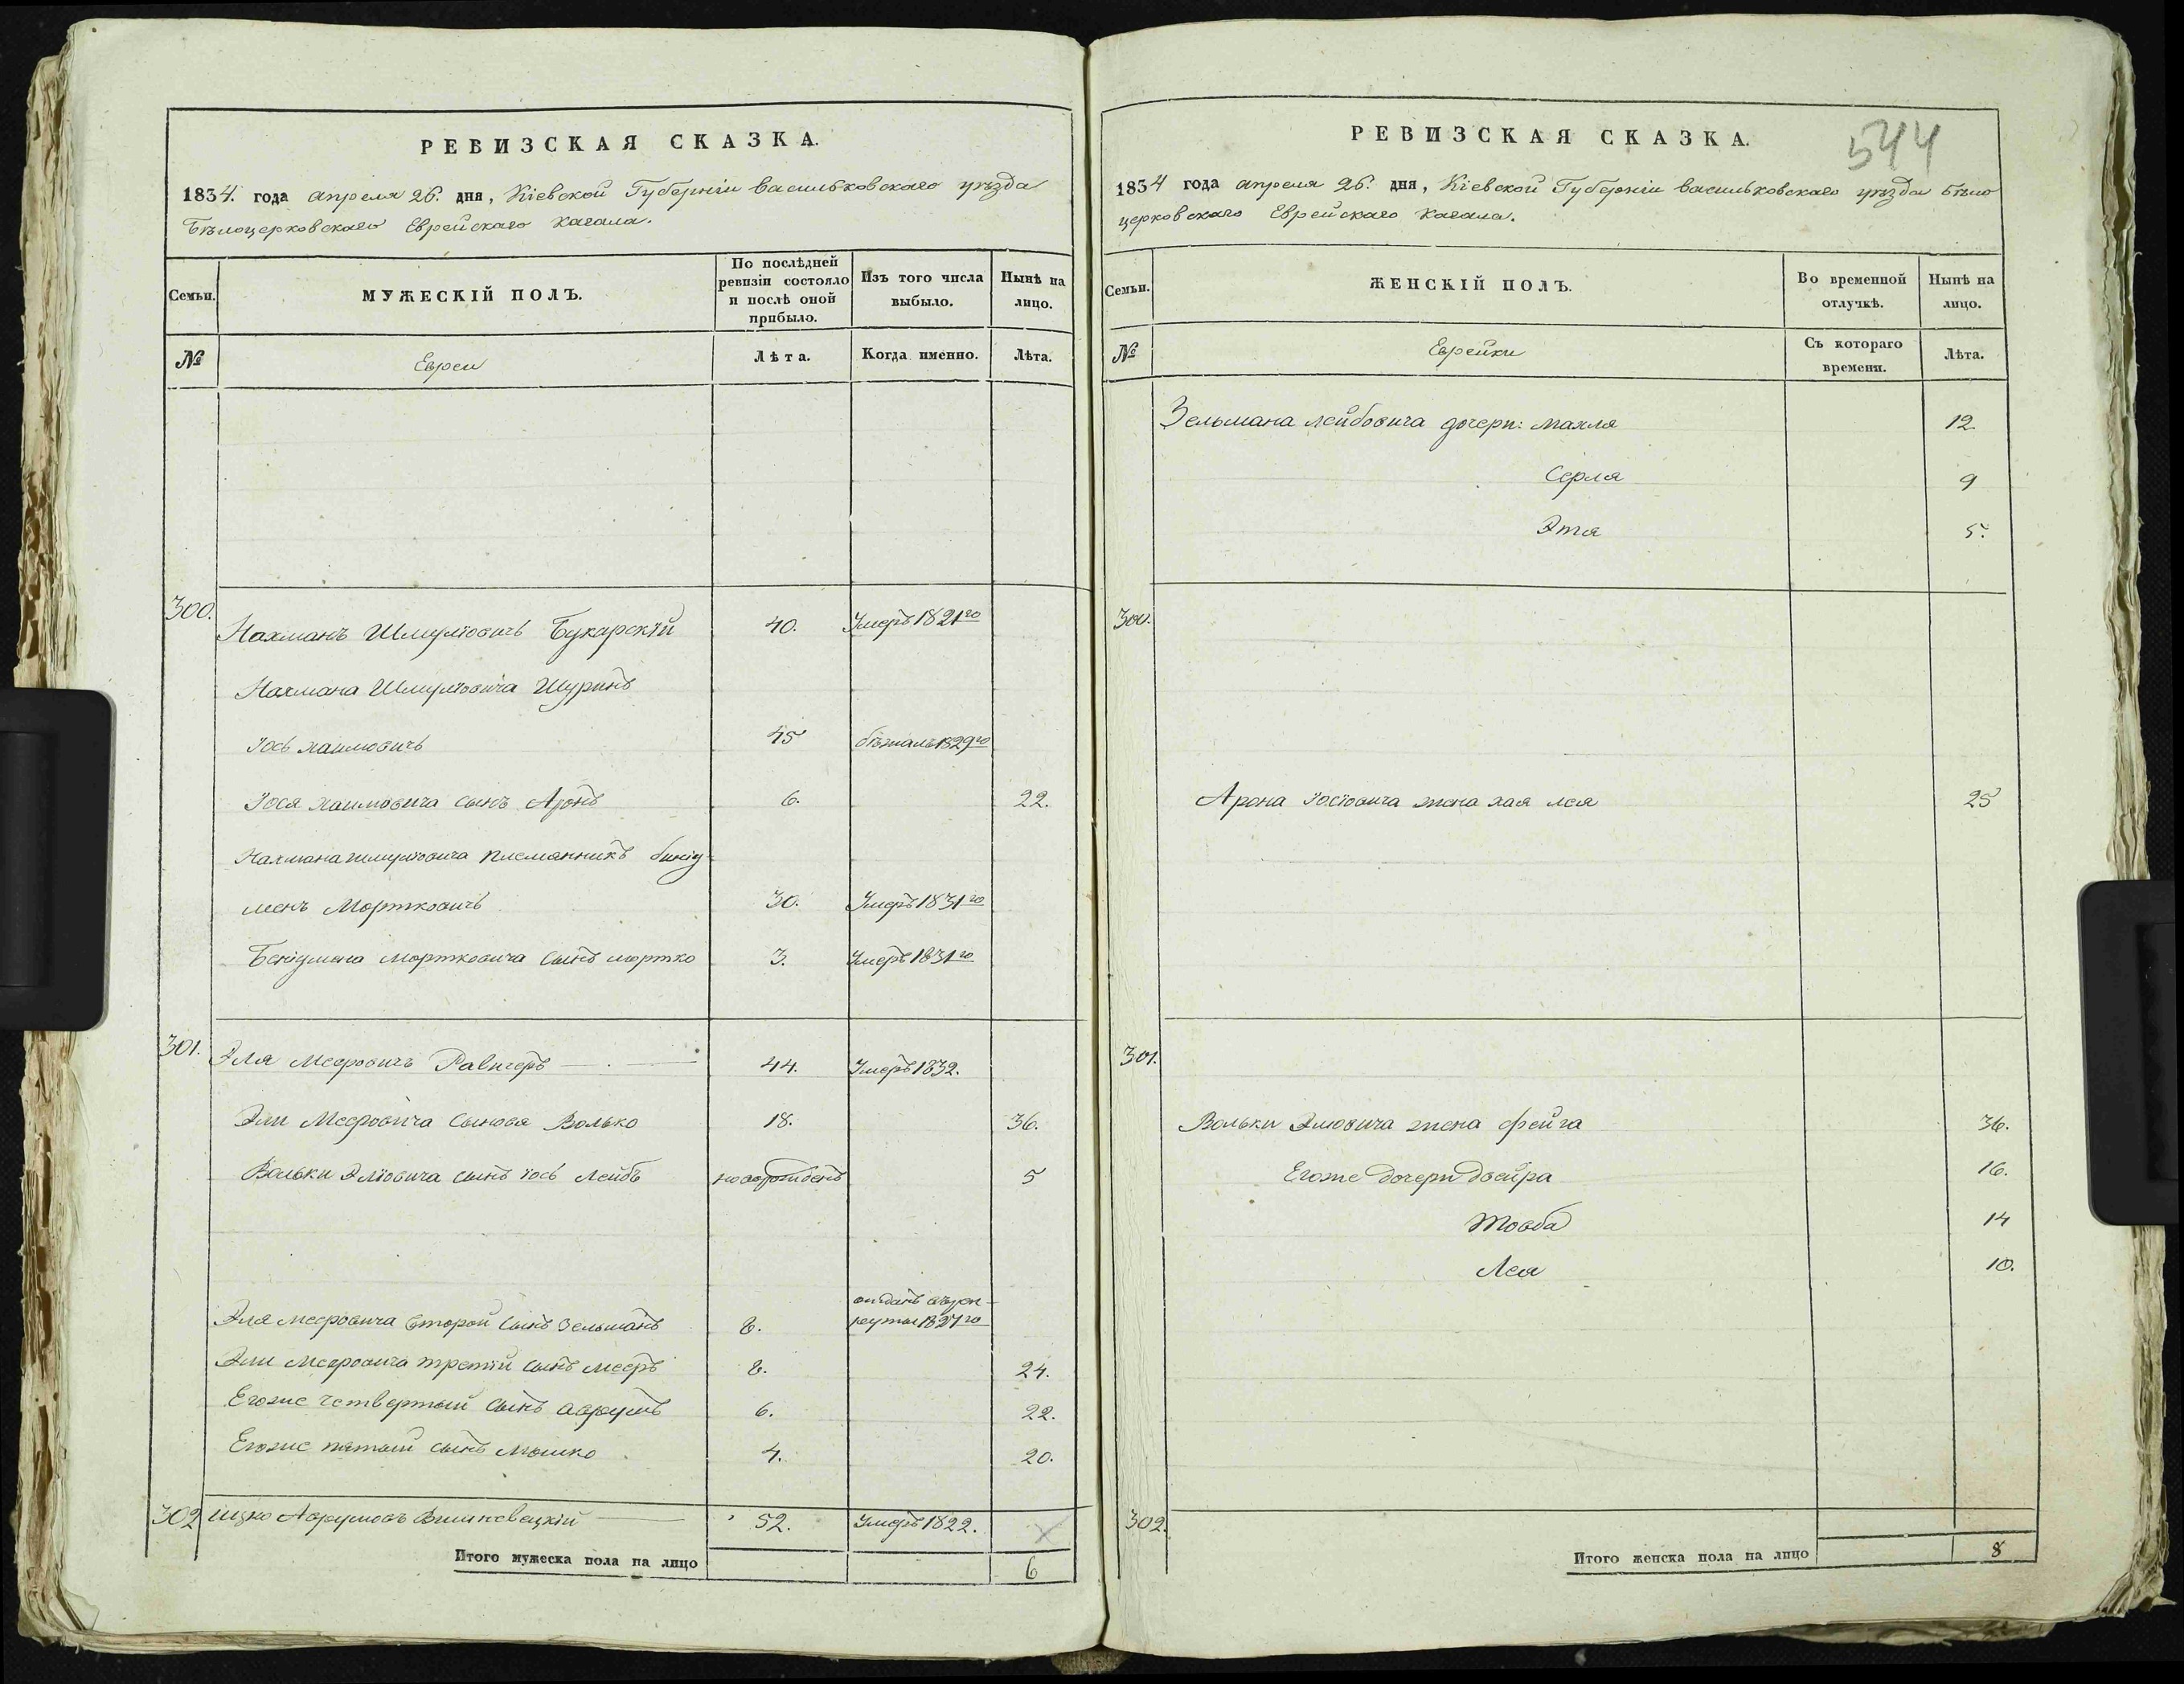 РЕВИЗСКАЯ СКАЗКА.
1834. года апреля 26. дня, Кіевской Губерніи Васильковскаго уѣзда
Бѣлоцерковскаго Еврейскаго Кагала.
Семьи.
МУЖЕСКІЙ ПОЛЪ.
По послѣдней
ревизіи состояло
и послѣ оной
прибыло.
Изъ того числа
выбыло.
Нынѣ на
лицо.
№
Евреи
Лѣта.
Когда именно.
Лѣта.
300. Нахманъ Шмулiовичъ Букарскій 40. Умеръ 1821го
Нахмана Шмулiовича Шуринъ
Іось Хаимовичъ 45 бѣжалъ 1829го
Іося Хаимовича сынъ Аронъ 6. 22.
Нахмана Шмулiовича племянникъ
менъ Мортковичъ 30. Умеръ 1831го
Мортковича сынъ Мортко 3. Умеръ 1831го
301. Эля Мееровичъ 44. Умеръ 1832.
Эли Мееровича сыновя Волько 18. 36.
Вольки Элiовича сынъ Іось Лейбъ новорожденъ 5
Эля Мееровича второй сынъ Зельманъ 8. отданъ въ рек
руты 1827го
Эли Мееровича третій сынъ Мееръ 8. 24.
Егоже четвертый сынъ Аврумъ 6. 22.
Егоже пятый сынъ Мошко 4. 20.
302 Ицко Аврумовъ Вишневецкій 52. Умеръ 1822.
Итого мужеска пола на лицо 6
РЕВИЗСКАЯ СКАЗКА.
544
1834 года апреля 26. дня, Кіевской Губерніи Васильковскаго уѣзда Бѣло
церковскаго Еврейскаго Кагала.
Семьи.
ЖЕНСКІЙ ПОЛЪ.
Во временной
отлучкѣ.
Нынѣ на
лицо.
№
Еврейки
Съ котораго
времени.
Лѣта.
Зельмана Лейбовича дочери: Махля 12.
Серля 9
Этя 5.
300.
Арона Іосiовича жена Хая Лея 25
301.
Вольки Элiовича жена Фейга 36.
Егоже дочери Двейра 16.
Товба 14
Лея 10.
302.
Итого женска пола на лицо 8